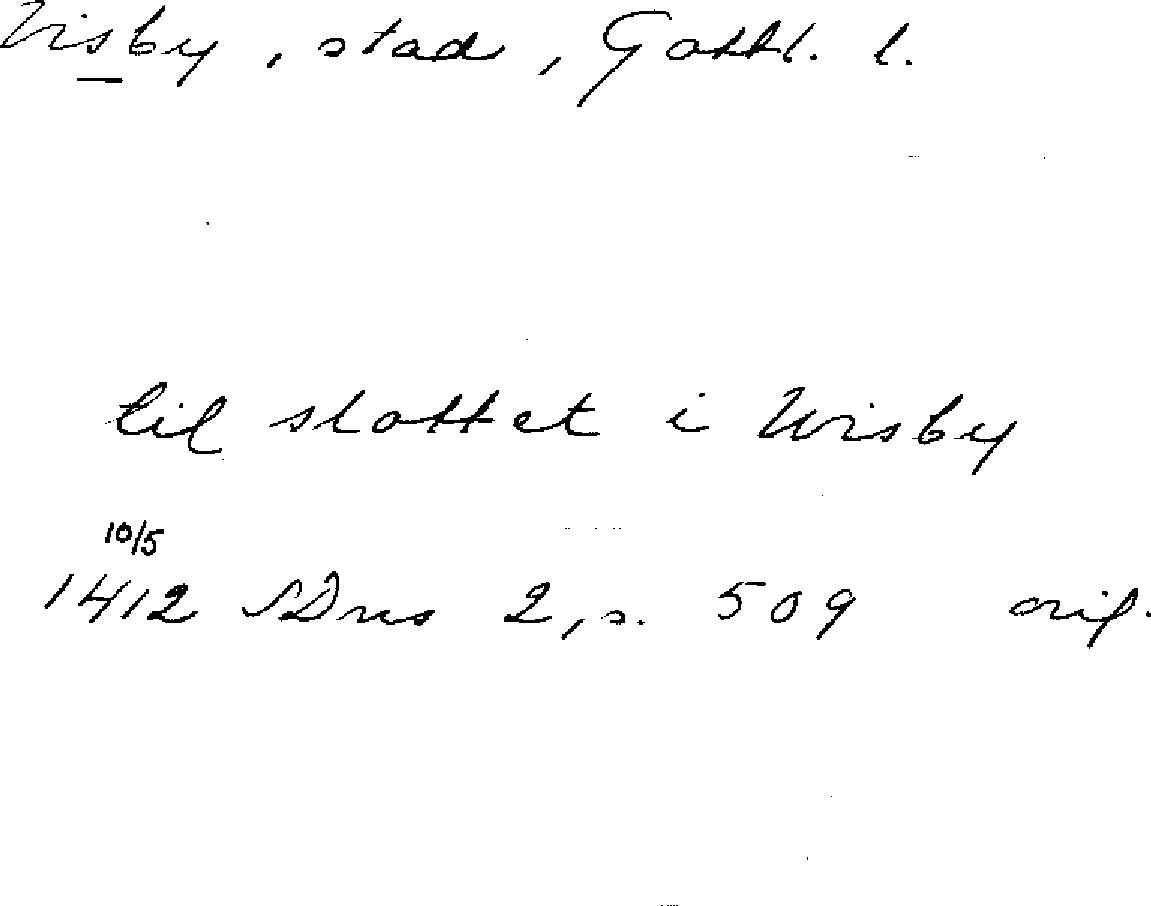 Visby, stad, Gottl. l.
til slottet i Wisby
10/5
1412 SDns 2, s. 509 orig.